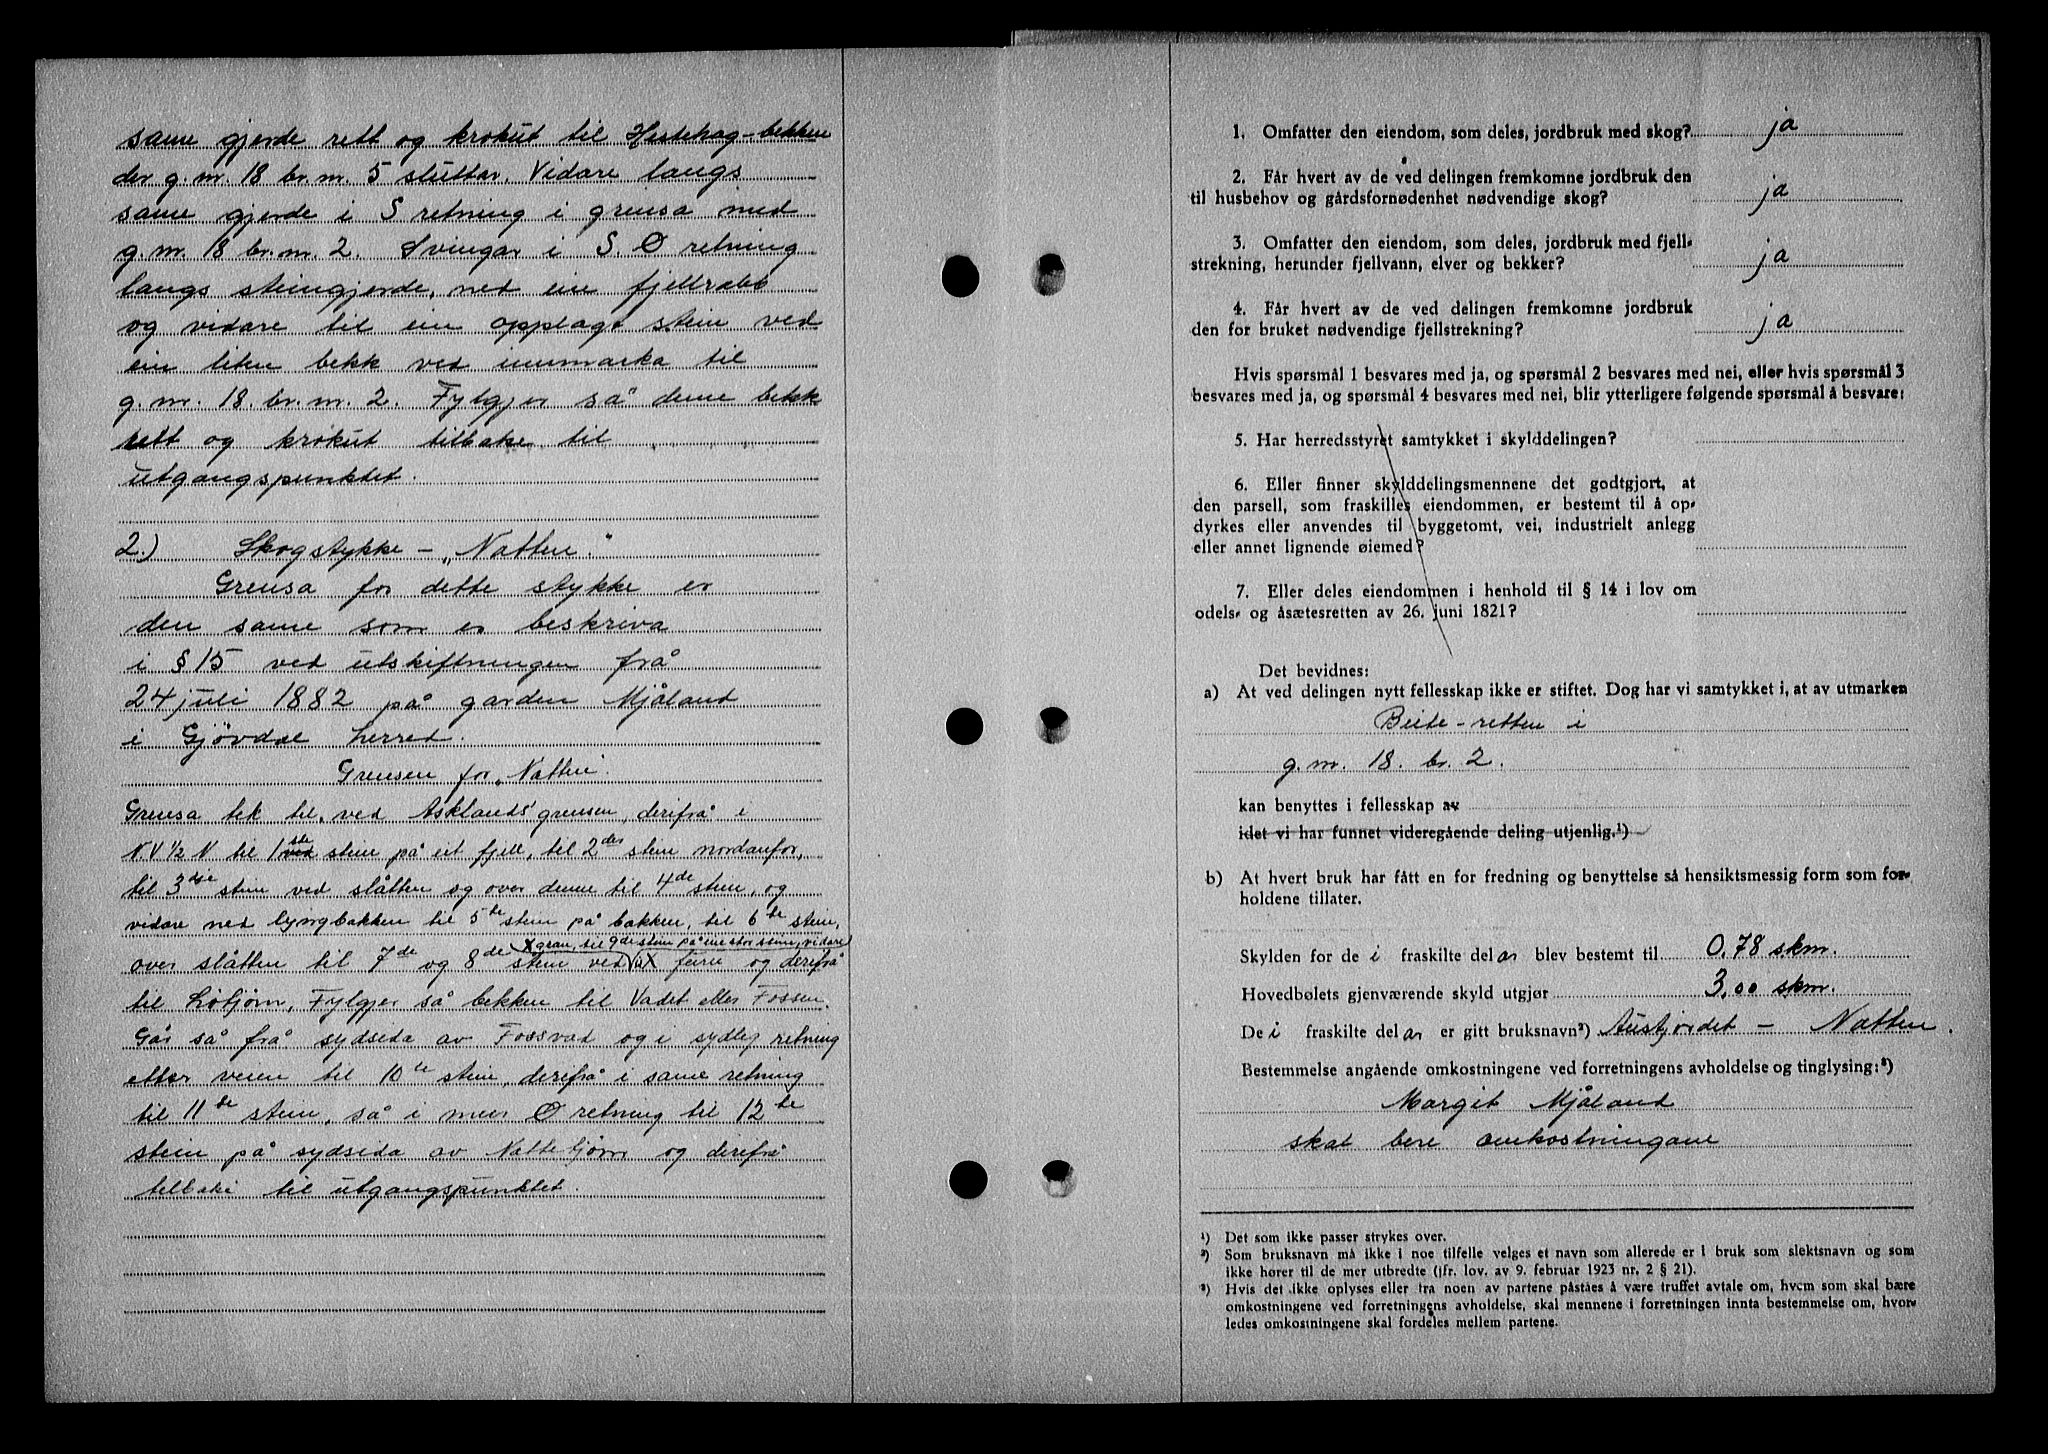 same gjerde rett og krokut til Hestehag-bekken
der g.nr. 18 br.nr. 5 sluttar. Vidare langs
same gjerde i S retning i grensa med
g.nr. 18 br.nr. 2. Svingar i S.Ø retning
langs steingjerde, ned ein fjellrabb
og vidare til ein opplagt stein ved
ein liten bekk ved innmarka til
g.nr. 18. br.nr. 2. Fylgjer så denne bekk
rett og krokut tilbake til
utgangspunktet.
2.) Skogstykke – „Natten".
Grensa for dette stykke er
den same som er beskriva
i § 15 ved utskiftningen frå
24 juli 1882 på garden Mjåland
i Gjövdal herred.
Grensen for „Natten".
Grensa tek til, ved Asklands grensen, derifrå i
N.V ½ N til 1ste stein på eit fjell, til 2den stein nordanfor,
til 3dje stein ved slåtten og over denne til 4de stein, og
vidare ned lyngbakken til 5te stein på bakken, til 6te stein,
x gran, til 9de stein på ein stor stein, vidare
over slåtten til 7de og 8de stein ved ei x furu og derifrå
til Lötjörn, Fylgjer så bekken til Vadet eller Fossen.
Går så frå sydsida av Fossvad og i sydleg retning
etter veien til 10de stein, derifrå i same retning
til 11te stein, så i meir Ø retning til 12te
stein på sydsida av Nattetjörn og derifrå
tilbake til utgangspunktet.
1. Omfatter den eiendom, som deles, jordbruk med skog? ja
2. Får hvert av de ved delingen fremkomne jordbruk den
til husbehov og gårdsfornødenhet nødvendige skog? ja
3. Omfatter den eiendom, som deles, jordbruk med fjell-
strekning, herunder fjellvann, elver og bekker? ja
4. Får hvert av de ved delingen fremkomne jordbruk
den for bruket nødvendige fjellstrekning? ja
Hvis spørsmål 1 besvares med ja, og spørsmål 2 besvares med nei, eller hvis spørsmål 3
besvares med ja, og spørsmål 4 besvares med nei, blir ytterligere følgende spørsmål å besvare:
5. Har herredsstyret samtykket i skylddelingen?
6. Eller finner skylddelingsmennene det godtgjort, at
den parsell, som fraskilles eiendommen, er bestemt til å op-
dyrkes eller anvendes til byggetomt, vei, industrielt anlegg
eller annet lignende øiemed?
7. Eller deles eiendommen i henhold til § 14 i lov om
odels- og åsætesretten av 26. juni 1821?
Det bevidnes:
a) At ved delingen nytt fellesskap ikke er stiftet. Dog har vi samtykket i, at av utmarken
Beite-retten i
g.nr. 18. br. 2.
kan benyttes i fellesskap av
idet vi har funnet videregående deling utjenlig.¹)
b) At hvert bruk har fått en for fredning og benyttelse så hensiktsmessig form som for-
holdene tillater.
Skylden for de i fraskilte delar blev bestemt til 0,78 skm.
Hovedbølets gjenværende skyld utgjør 3,00 skm.
De i fraskilte delar er gitt bruksnavn²) Austjordet – Natten.
Bestemmelse angående omkostningene ved forretningens avholdelse og tinglysing:³)
Margit Mjåland
skal bere omkostningane
¹) Det som ikke passer strykes over.
²) Som bruksnavn må ikke i noe tilfelle velges et navn som allerede er i bruk som slektsnavn og som
ikke hører til de mer utbredte (jfr. lov. av 9. februar 1923 nr. 2 § 21).
³) Hvis det ikke oplyses eller fra noen av partene påståes å være truffet avtale om, hvem som skal bære
omkostningene ved forretningens avholdelse, skal mennene i forretningen innta bestemmelse om, hvor-
ledes omkostningene skal fordeles mellem partene.